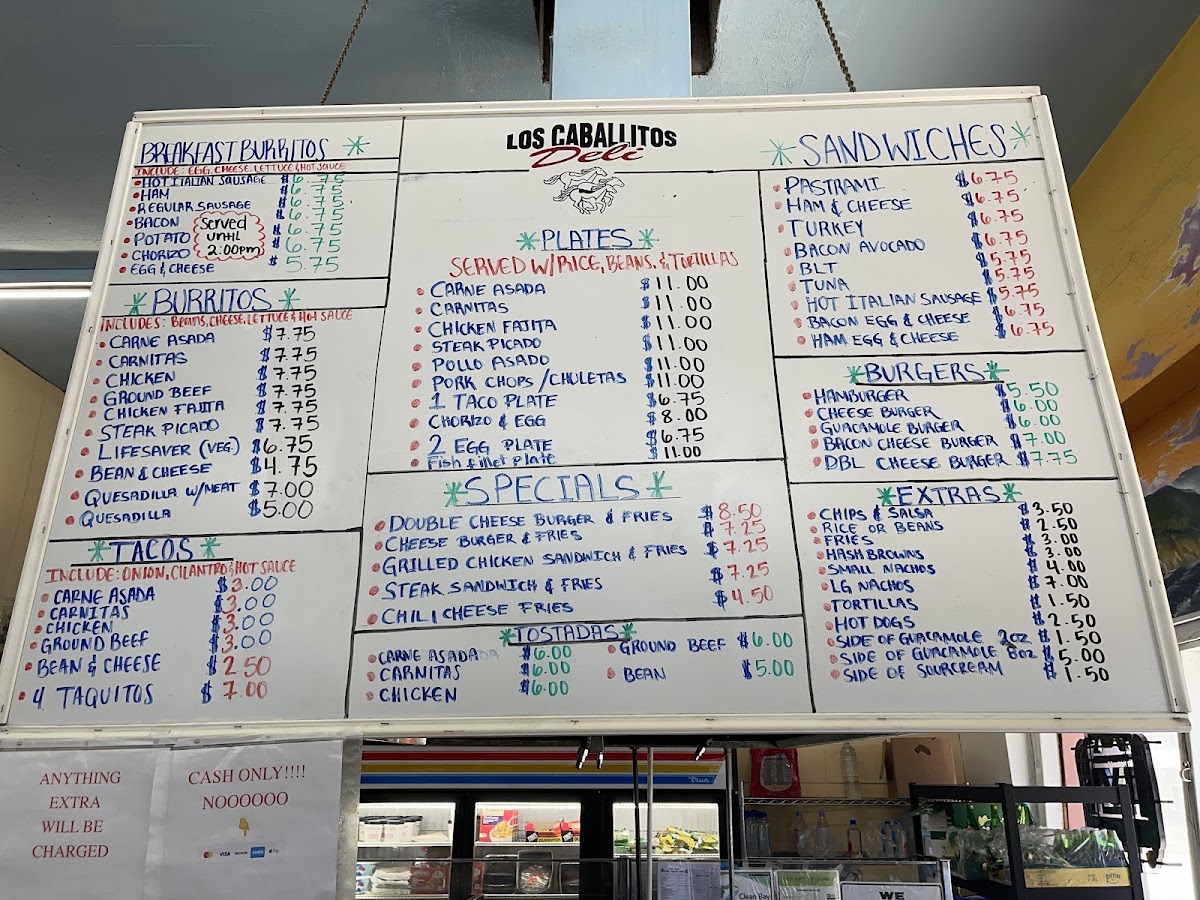 LOS CABALLITOS
Deli
BREAKFAST BURRITOS
INCLUDE: EGG, CHEESE, LETTUCE & HOT SAUCE
HOT ITALIAN SAUSAGE $6.75
HAM $6.75
REGULAR SAUSAGE $6.75
BACON $6.75
POTATO $6.75
CHORIZO $6.75
EGG & CHEESE $5.75
Served
until
2:00pm
BURRITOS
INCLUDES: BEANS, CHEESE, LETTUCE & HOT SAUCE
CARNE ASADA $7.75
CARNITAS $7.75
CHICKEN $7.75
GROUND BEEF $7.75
CHICKEN FAJITA $7.75
STEAK PICADO $7.75
LIFESAVER (VEG.) $6.75
BEAN & CHEESE $4.75
QUESADILLA W/MEAT $7.00
QUESADILLA $5.00
TACOS
INCLUDE: ONION, CILANTRO & HOT SAUCE
CARNE ASADA $3.00
CARNITAS $3.00
CHICKEN $3.00
GROUND BEEF $3.00
BEAN & CHEESE $2.50
4 TAQUITOS $7.00
PLATES
SERVED W/RICE, BEANS, & TORTILLAS
CARNE ASADA $11.00
CARNITAS $11.00
CHICKEN FAJITA $11.00
STEAK PICADO $11.00
POLLO ASADO $11.00
PORK CHOPS/CHULETAS $11.00
1 TACO PLATE $6.75
CHORIZO & EGG $8.00
2 EGG PLATE $6.75
Fish fillet plate $11.00
SPECIALS
DOUBLE CHEESE BURGER & FRIES $8.50
CHEESE BURGER & FRIES $7.25
GRILLED CHICKEN SANDWICH & FRIES $7.25
STEAK SANDWICH & FRIES $7.25
CHILI CHEESE FRIES $4.50
TOSTADAS
CARNE ASADA $6.00
CARNITAS $6.00
CHICKEN $6.00
GROUND BEEF $6.00
BEAN $5.00
SANDWICHES
PASTRAMI $6.75
HAM & CHEESE $6.75
TURKEY $6.75
BACON AVOCADO $6.75
BLT $5.75
TUNA $5.75
HOT ITALIAN SAUSAGE $5.75
BACON EGG & CHEESE $6.75
HAM EGG & CHEESE $6.75
BURGERS
HAMBURGER $5.50
CHEESE BURGER $6.00
GUACAMOLE BURGER $6.00
BACON CHEESE BURGER $7.00
DBL CHEESE BURGER $7.75
EXTRAS
CHIPS & SALSA $3.50
RICE OR BEANS $2.50
FRIES $3.00
HASH BROWNS $3.00
SMALL NACHOS $4.00
LG NACHOS $7.00
TORTILLAS $1.50
HOT DOGS $2.50
SIDE OF GUACAMOLE 2oz $1.50
SIDE OF GUACAMOLE 8oz $5.00
SIDE OF SOURCREAM $1.50
ANYTHING
EXTRA
WILL BE
CHARGED
CASH ONLY!!!!
NOOOOOO
VISA
Pay
True
Clean Bay
WE